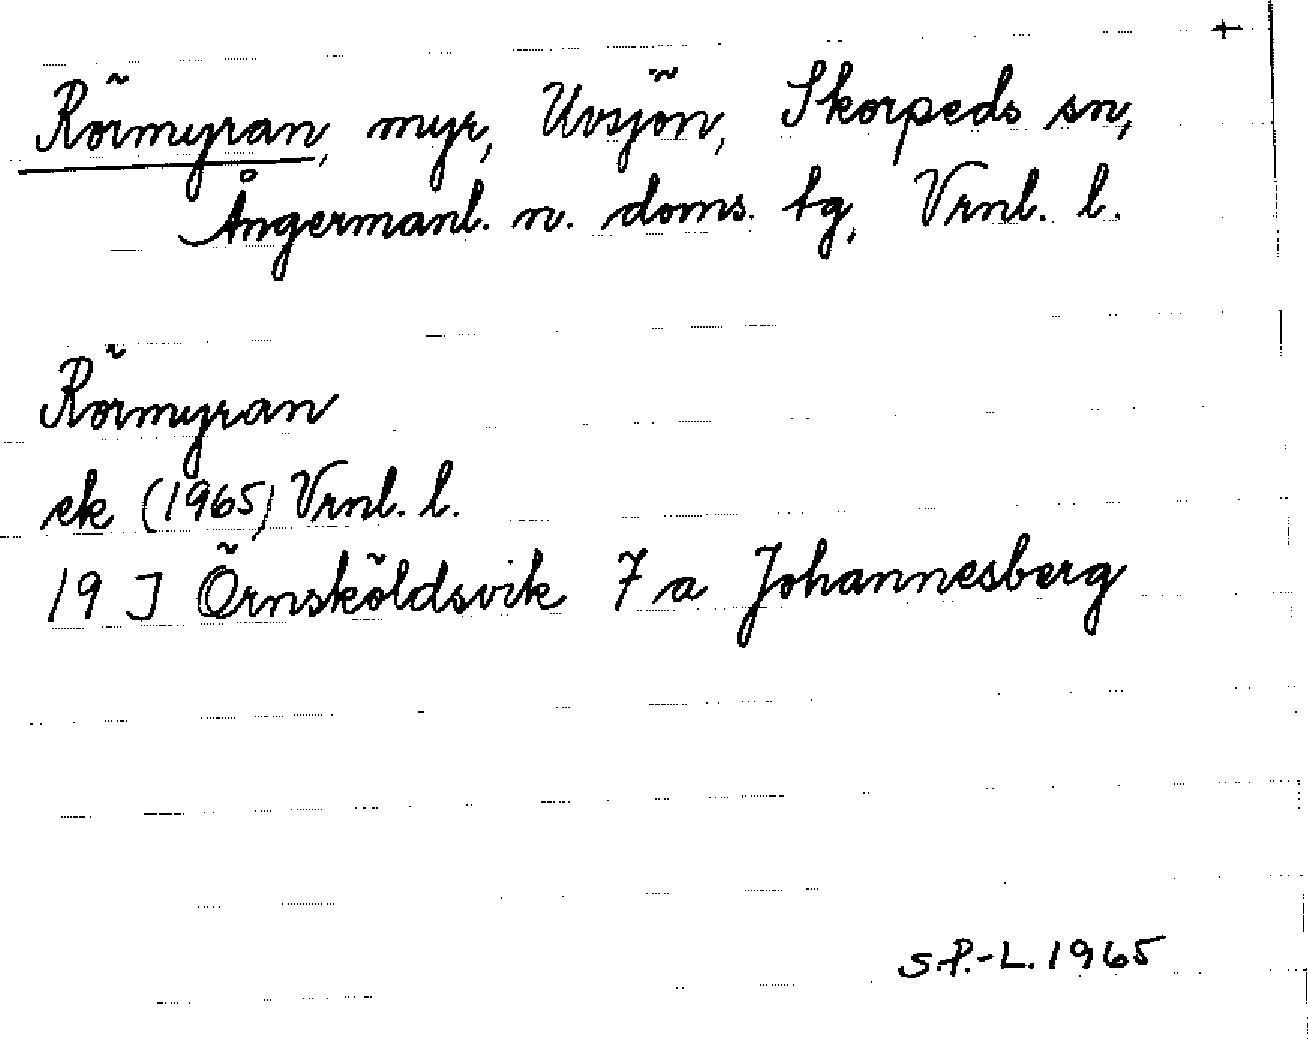 +
Rörmyran, myr, Uvsjön, Skorpeds sn,
Ångermanl. n. doms. tg, Vrnl. l.
Rörmyran
ek (1965) Vrnl. l.
19 J Örnsköldsvik 7 a Johannesberg
S.P.-L. 1965